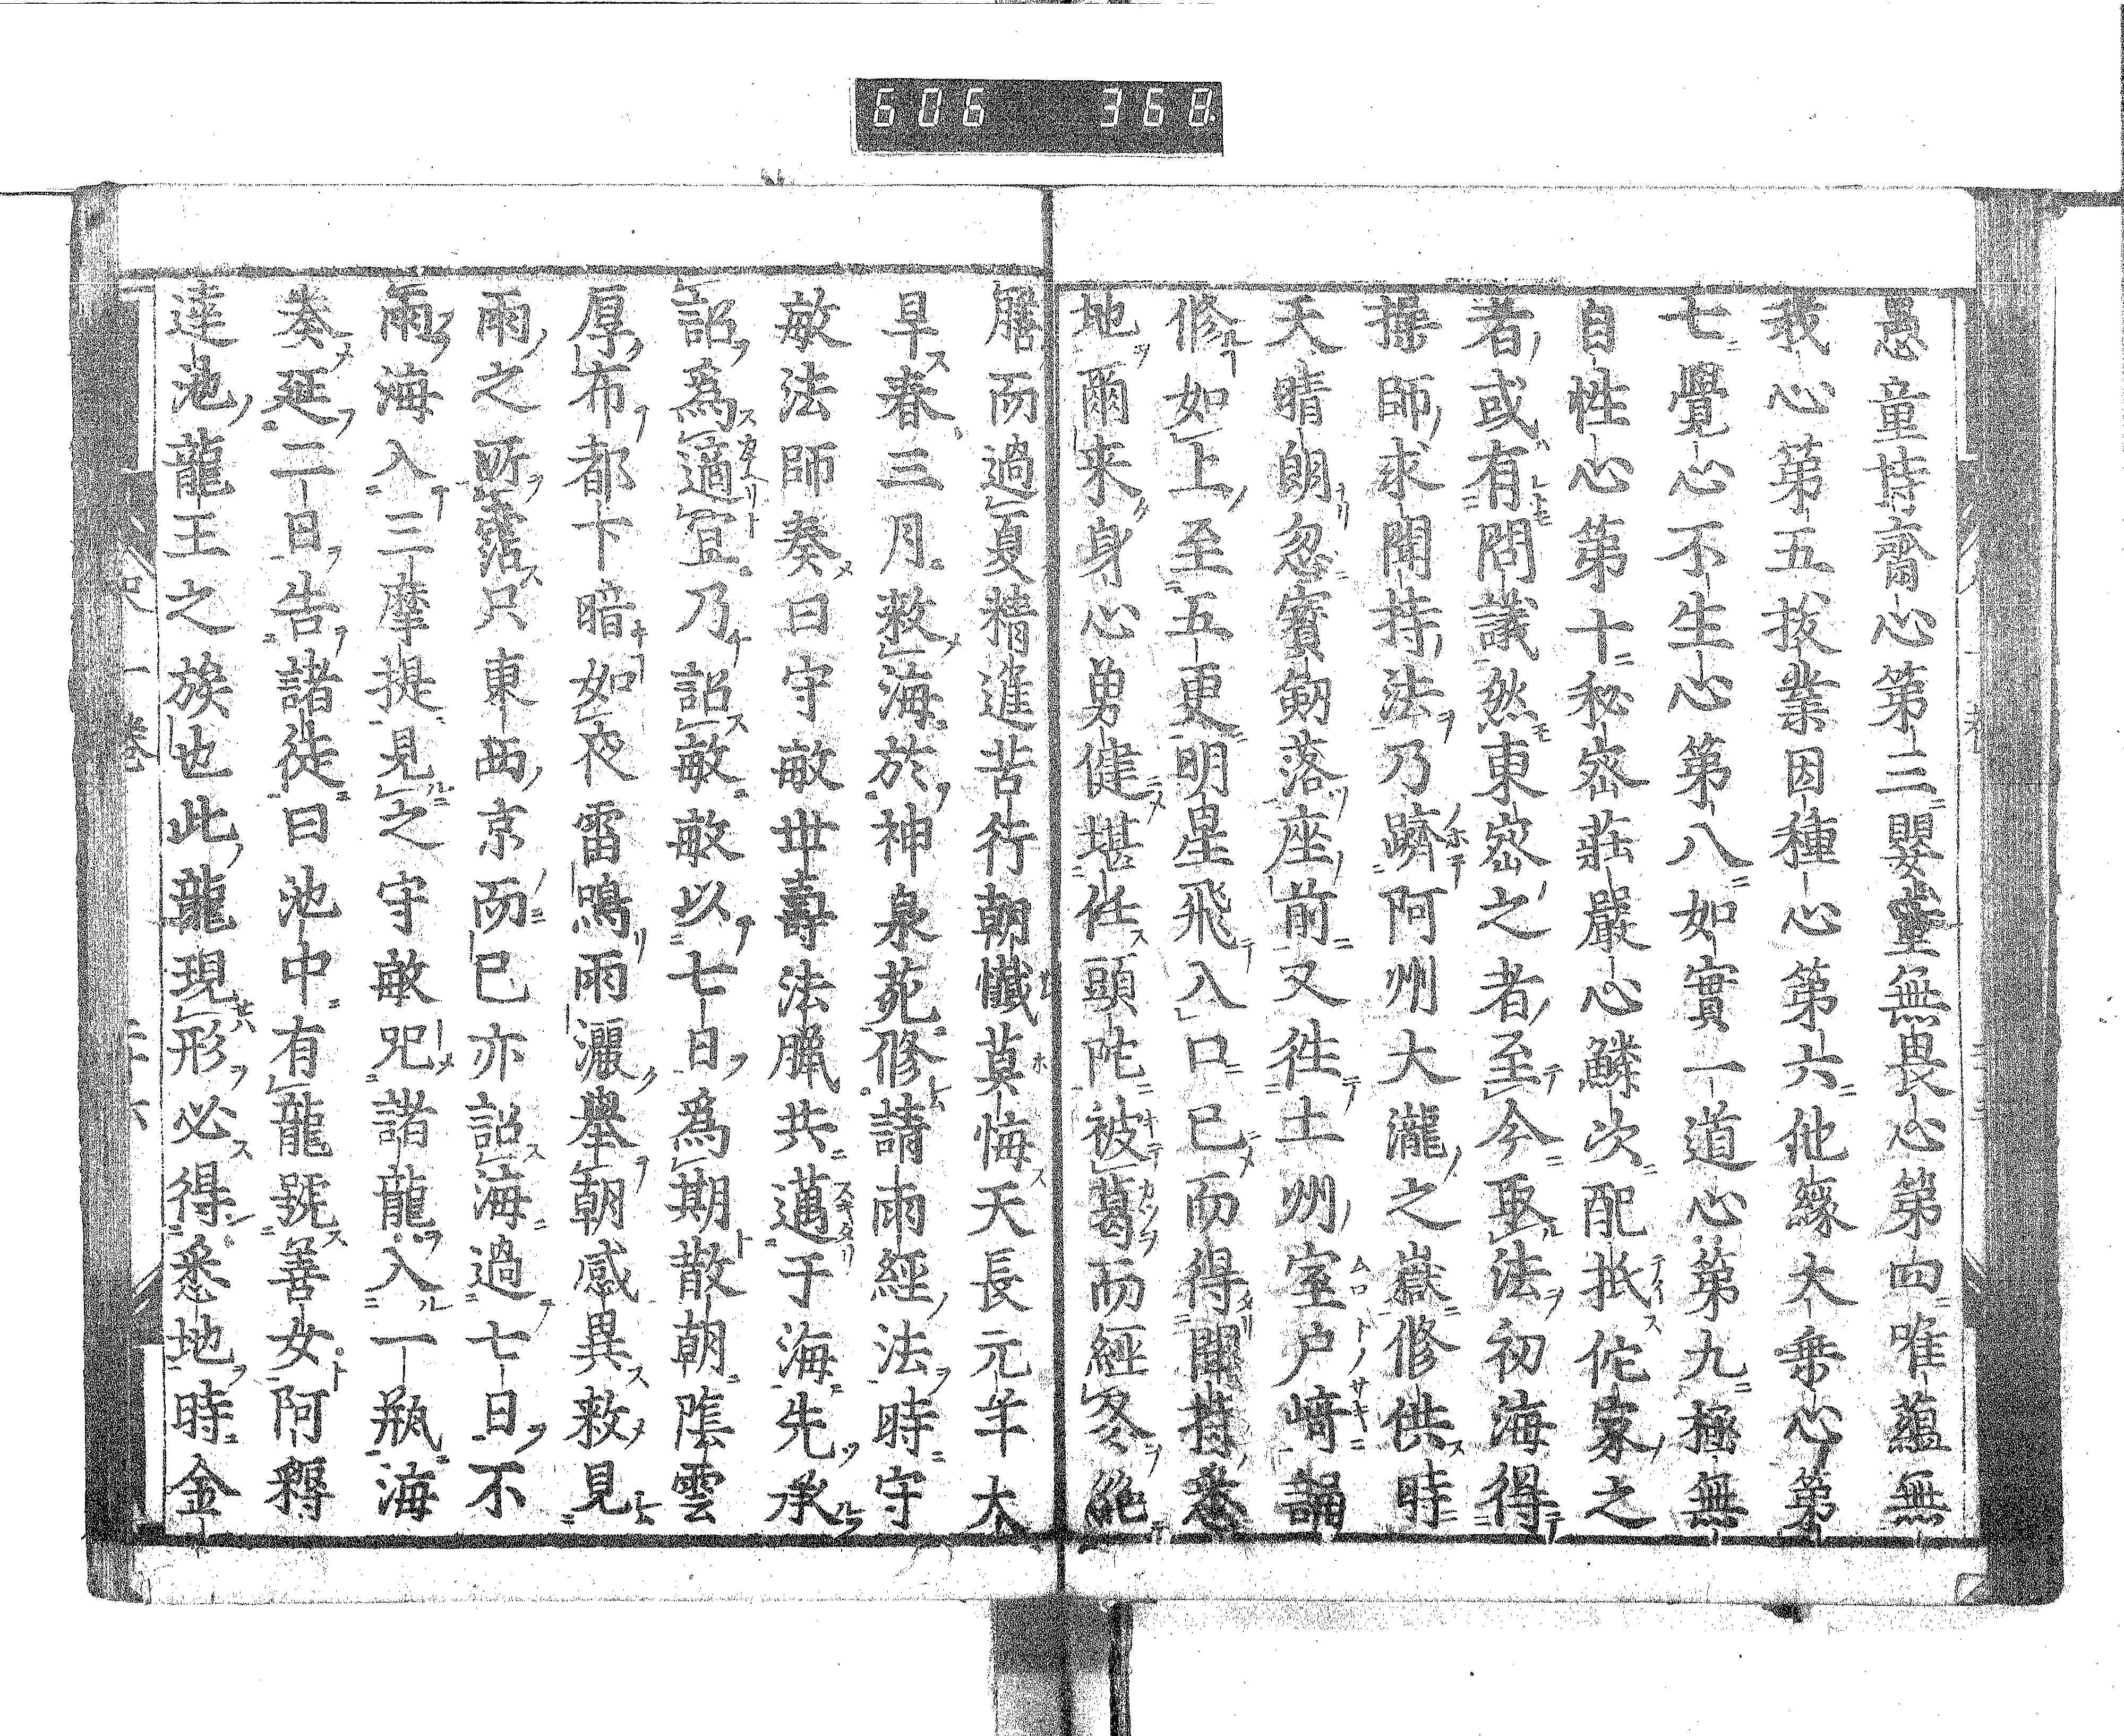 606 368
愚童持齋心第三嬰童無畏心第四唯蘊無
我心第五拔業因種心第六他緣大乘心第
七覺心不生心第八如實一道心第九極無
自性心第十秘密莊嚴心鱗次配抵佗家之
者或有問議然東密之者至今取法初海得
操師求聞持法乃躋阿州大瀧之嶽修供時
天晴朗忽寶劍落座前又往土州室戶﨑誦
修如上至五更明星飛入口已而得聞持悉
地爾来身心勇健堪任頭陀被葛而經冬絶
膳而過夏精進苦行朝懺莫悔天長元年太
旱春三月救海於神泉苑修請雨經法時守
敏法師奏曰守敏世壽法臘共邁于海先承
詔爲適宜乃詔敏敏以七日爲期散朝陰雲
厚布都下暗如夜雷鳴雨灑舉朝感異敕見
雨之所霑只東西京而已亦詔海過七日不
雨海入三摩提見之守敏咒諸龍入一瓶海
奏延二日告諸徒曰池中有龍號善女阿耨
達池龍王之族也此龍現形必得悉地時金